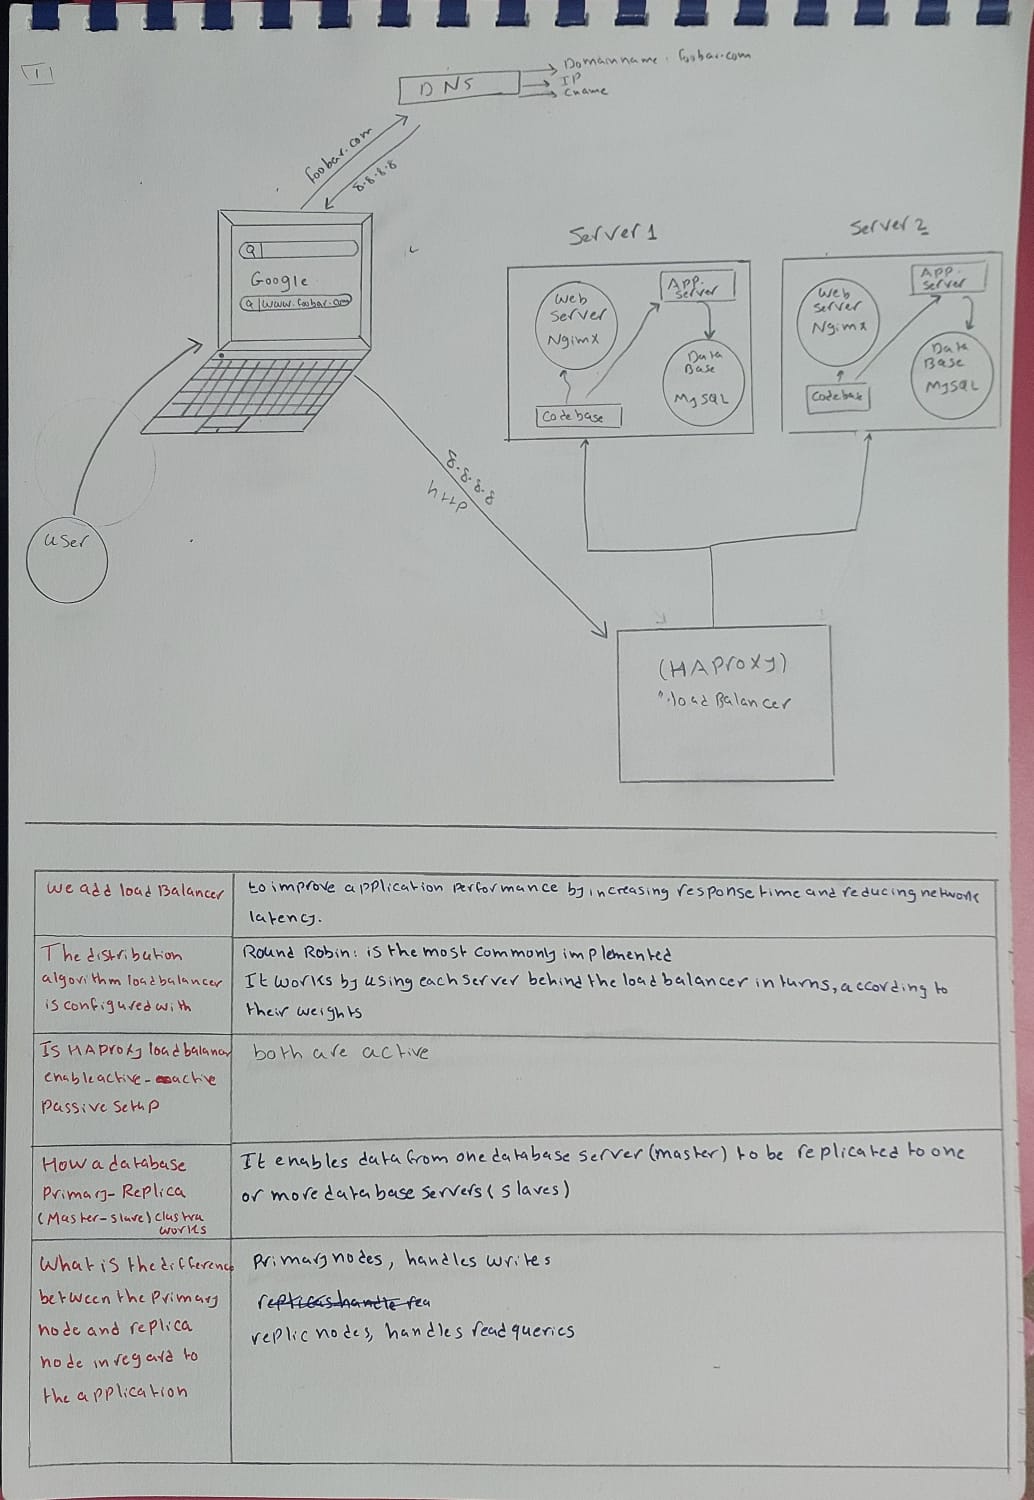 1
DNS
Domain name: foobar.com
IP
Cname
foobar.com
8.8.8.8
Google
www.foobar.com
User
8.8.8.8
http
Server 1
Web
Server
Nginx
APP.
Server
Data
Base
MySQL
Codebase
Server 2
Web
Server
Nginx
APP.
Server
Data
Base
MySQL
Codebase
(HAProxy)
load Balancer
we add load Balancer
to improve application performance by increasing response time and reducing network
latency.
The distribution
algorithm load balancer
is configured with
Round Robin: is the most commonly implemented
It works by using each server behind the load balancer in turns, according to
their weights
Is HAProxy load balancer
enable active-active
Passive Setup
both are active
How a database
Primary-Replica
(Master-slave) clustra
works
It enables data from one database server (master) to be replicated to one
or more database servers (slaves)
What is the difference
between the Primary
node and replica
node in regard to
the application
Primary nodes, handles writes
replicas handle rea
replic nodes, handles read queries